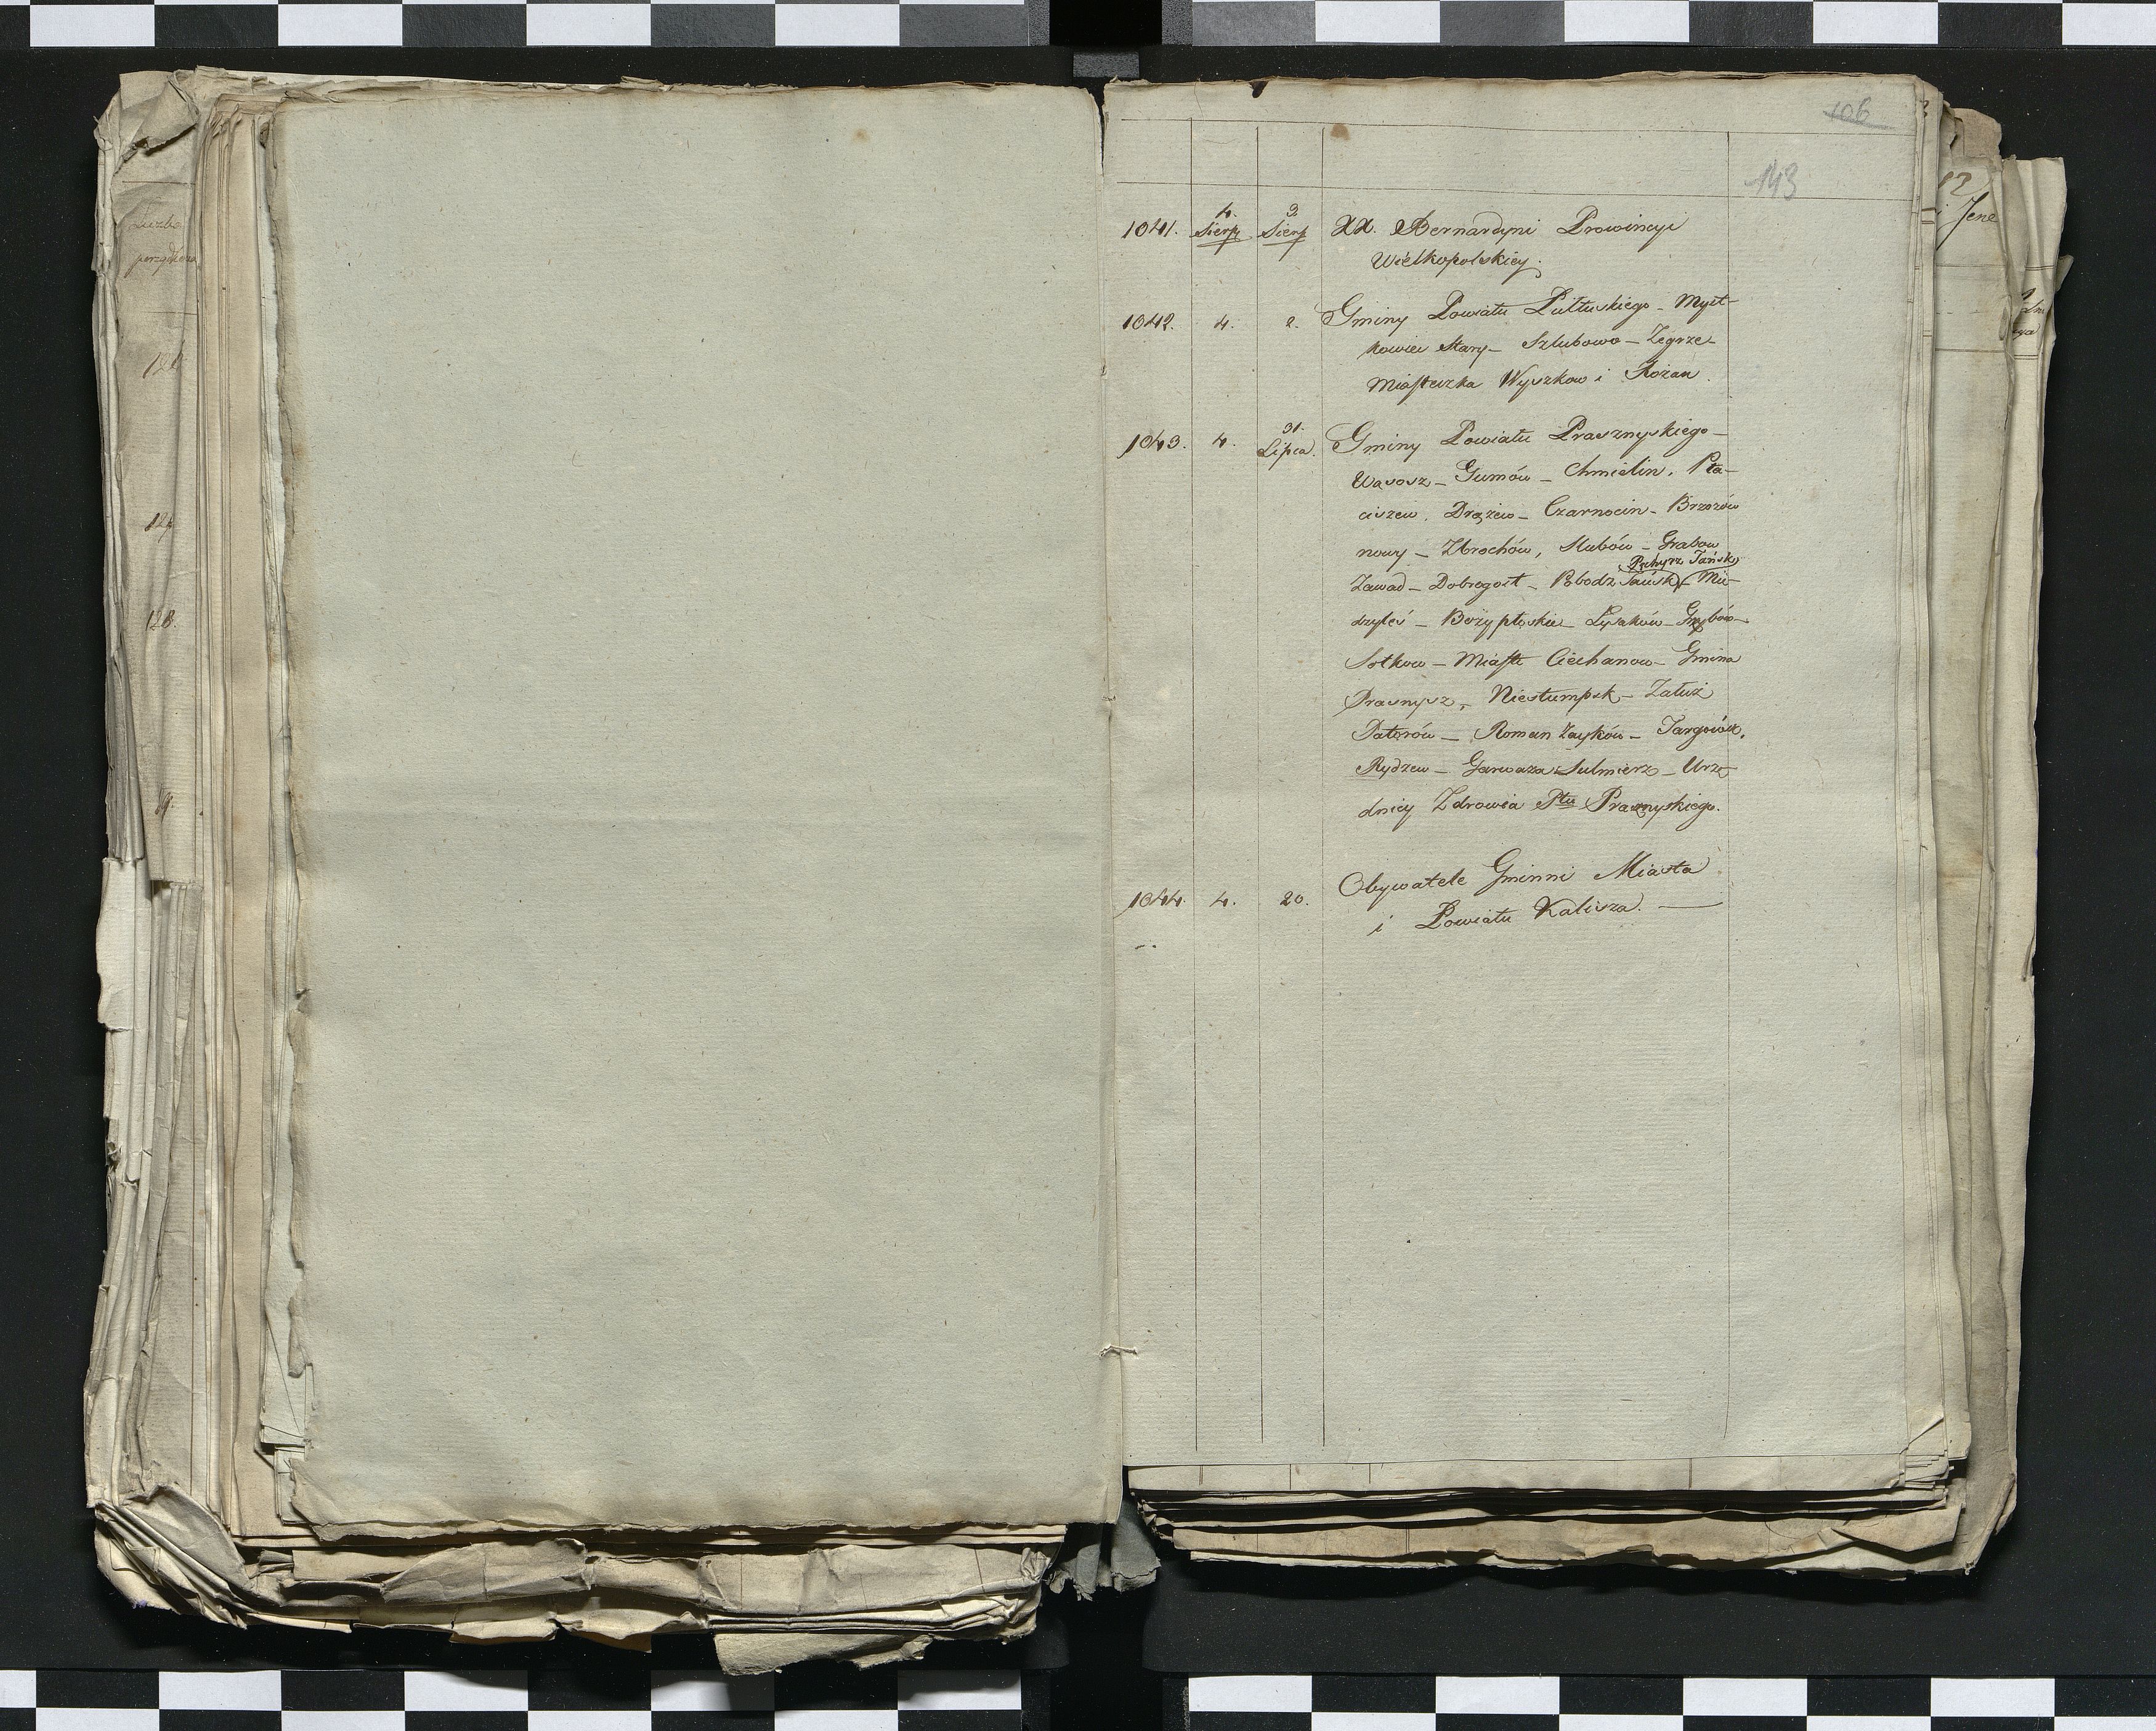 106
143
1041. 4. Sierp 9. Sierp XX. Bernardyni Prowincyi
Wielkopolskiey.
1042. 4. 2. Gminy Powiatu Pułtuskiego – Myst-
kowiec Stary – Szlubowo – Zegrze –
Miasteczka Wyszkow i Rożan.
1043. 4. 31. Lipca. Gminy Powiatu Prasznyskiego –
Wąsosz – Gumów – Chmielin. Pta-
ciszew. Drążew – Czarnocin – Brzozów
nowy – Zbrochów, Słubów – Grabow
Pęchyrz Tańsk
Zawad – Dobrogost – Tańsk – Mie-
dzyleś – Łysaków – Grzybów –
Sołkow – Miasto Ciechanow – Gmina
Prasnysz, Niestumpsk – Załuż
Daterów – Roman Zayków – Targońsk.
Rydzew – Garwarz Sulmierz – Urzę-
dnicy Zdrowia Ptu Prasznyskiego.
1044. 4. 20. Obywatele Gminni Miasta
i Powiatu Kalisza. —
Liczba
porządkowa
128.